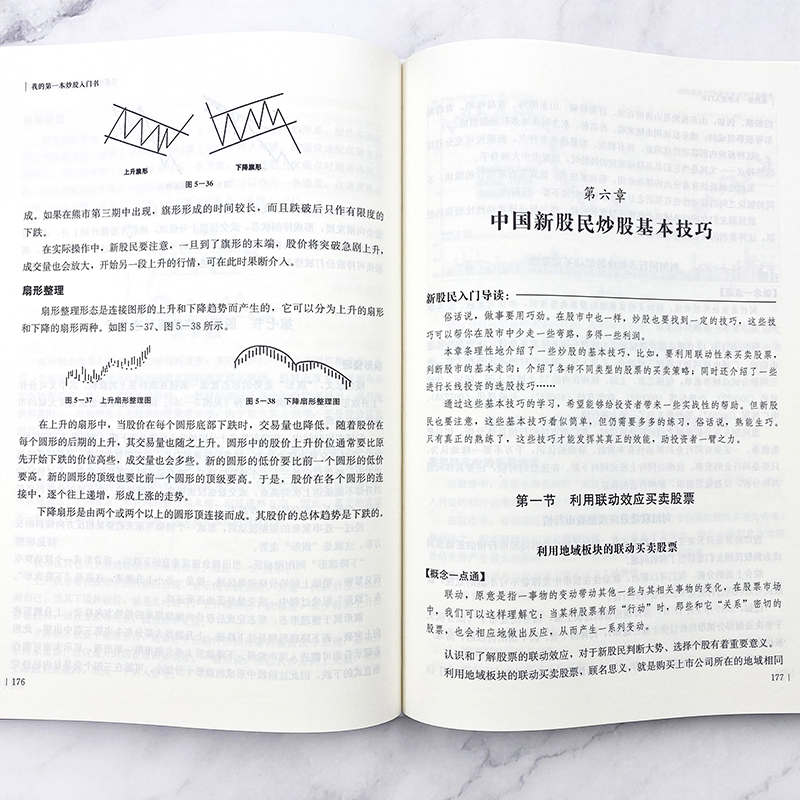 我的第一本炒股入门书
上升旗形
下降旗形
图 5—36
成。如果在熊市第三期中出现，旗形形成的时间较长，而且跌破后只作有限度的
下跌。
在实际操作中，新股民要注意，一旦到了旗形的末端，股价将突破急剧上升，
成交量也会放大，开始另一段上升的行情，可在此时果断介入。
扇形整理
扇形整理形态是连接图形的上升和下降趋势而产生的，它可以分为上升的扇形
和下降的扇形两种。如图 5-37、图 5-38 所示。
图 5—37 上升扇形整理图
图 5—38 下降扇形整理图
在上升的扇形中，当股价在每个圆形底部下跌时，交易量也降低。随着股价在
每个圆形的后期的上升，其交易量也随之上升。圆形中的股价上升价位通常要比原
先开始下跌的价位高些，成交量也会多些。新的圆形的低价要比前一个圆形的低价
要高。新的圆形的顶级也要比前一个圆形的顶级要高。于是，股价在各个圆形的连
接中，逐个往上递增，形成上涨的走势。
下降扇形是由两个或两个以上的圆形顶连接而成。其股价的总体趋势是下跌的，
176
第六章
中国新股民炒股基本技巧
新股民入门导读：
俗话说，做事要用巧劲。在股市中也一样，炒股也要找到一定的技巧，这些技
巧可以帮你在股市中少走一些弯路，多得一些利润。
本章条理性地介绍了一些炒股的基本技巧，比如，要利用联动性来买卖股票，
判断股市的基本走向；介绍了各种不同类型的股票的买卖策略；同时还介绍了一些
进行长线投资的选股技巧……
通过这些基本技巧的学习，希望能够给投资者带来一些实战性的帮助。但新股
民也要注意，这些基本技巧看似简单，但仍需要多多的练习，俗话说，熟能生巧。
只有真正的熟练了，这些技巧才能发挥其真正的效能，助投资者一臂之力。
第一节 利用联动效应买卖股票
利用地域板块的联动买卖股票
【概念一点通】
联动，原意是指一事物的变动带动其他一些与其相关事物的变化，在股票市场
中，我们可以这样理解它：当某种股票有所“行动”时，那些和它“关系”密切的
股票，也会相应地做出反应，从而产生一系列变动。
认识和了解股票的联动效应，对于新股民判断大势、选择个股有着重要意义。
利用地域板块的联动买卖股票，顾名思义，就是购买上市公司所在的地域相同
177